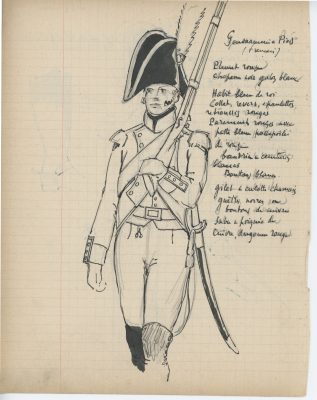 Gendarmerie à Pied
(français)
Plumet rouge
chapeau noir galon blanc
Habit bleu de roi
Collet, revers, épaulettes,
retroussis rouges
Parements rouges avec
patte bleue
de rouge
baudrier & ceinturon
blancs
Boutons blancs
gilet & culotte chamois
guêtres noires
boutons de cuivre
sabre à poignée de
cuivre, dragonne rouge